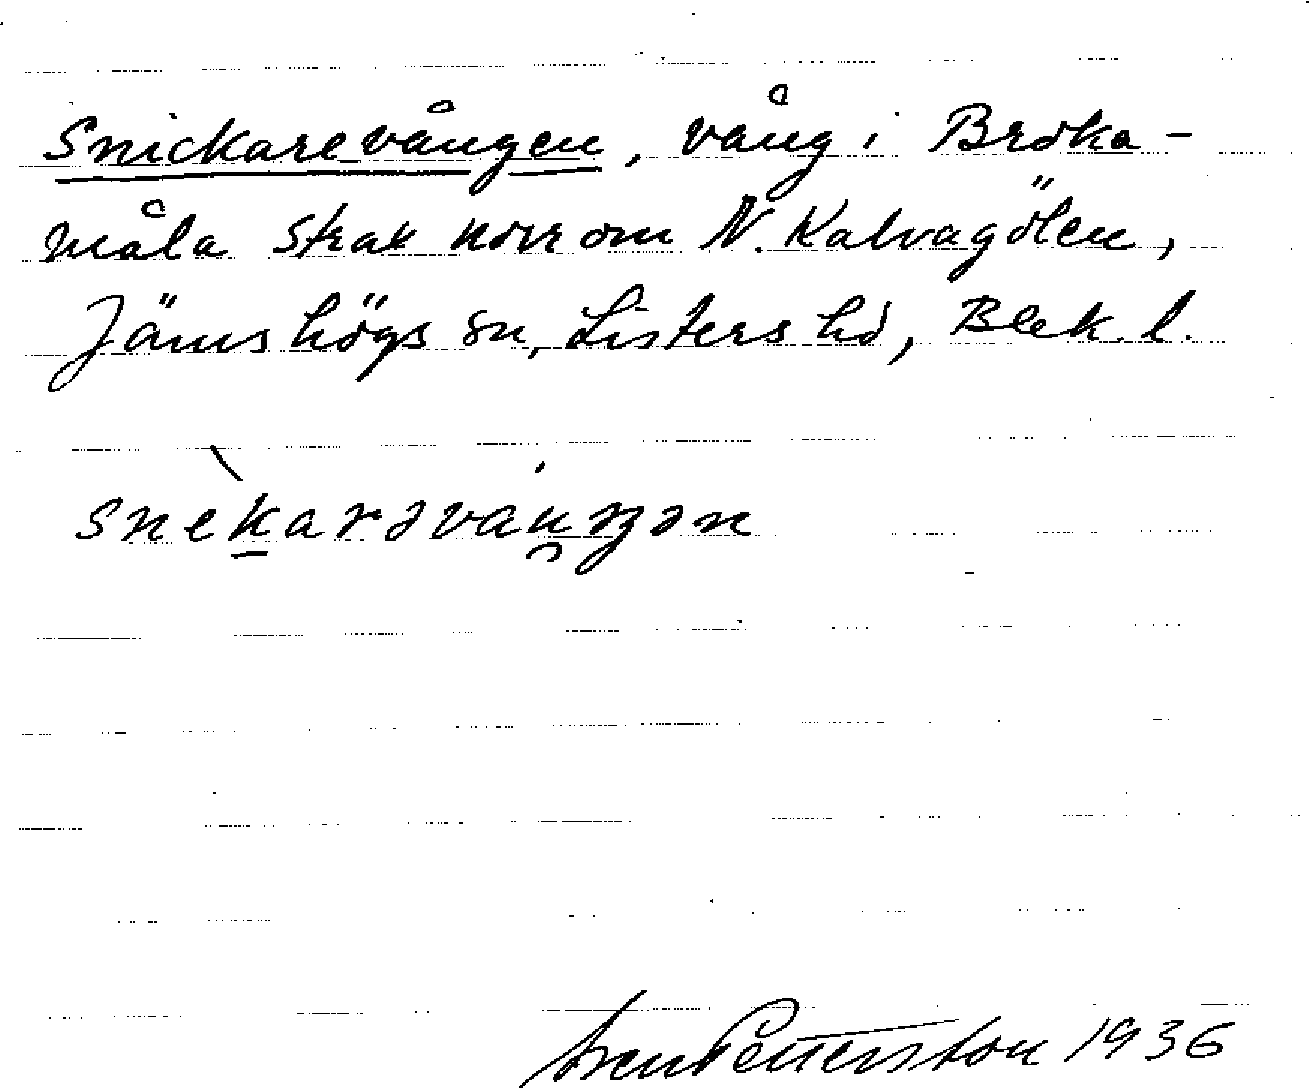 Snickarevången, vång i Broka-
måla strax norr om N. Kalvagölen,
Jämshögs sn, Listers hd, Blek. l.
snèkarəvåŋən
Sven Pettersson 1936